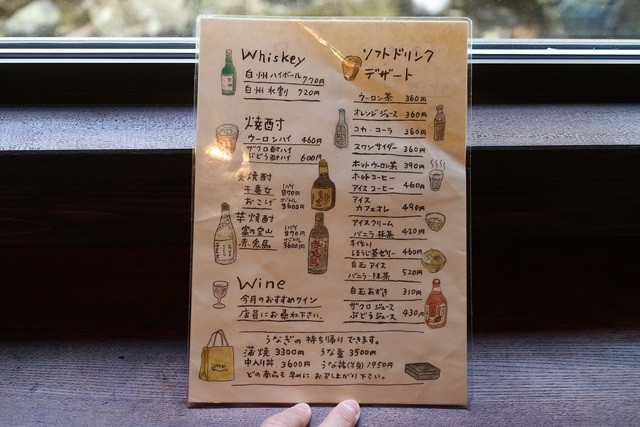 Whiskey
白州ハイボール 770円
白州水割り 720円
焼酎
ウーロンハイ 460円
ザクロ酢ハイ
ぶどう酢ハイ 600円
麦焼酎
天亀女 1パイ 870円
おこげ ボトル 3600円
芋焼酎
1パイ 870円
赤兎馬 ボトル 3600円
Wine
今月のおすすめワイン
店員にお尋ね下さい。
ソフトドリンク
デザート
ウーロン茶 360円
オレンジジュース 360円
コカ・コーラ 360円
スワンサイダー 360円
ホットウーロン茶 390円
ホットコーヒー
アイスコーヒー 460円
アイス
カフェオレ 490円
アイスクリーム
バニラ・抹茶 420円
手作り
ほうじ茶ゼリー 460円
白玉アイス
バニラ・抹茶 520円
白玉あずき 310円
ザクロジュース
ぶどうジュース 430円
うなぎの持ち帰りできます。
蒲焼 3300円 うな重 3500円
中入り丼 3600円 1950円
どの商品も早めにお召し上がり下さい。